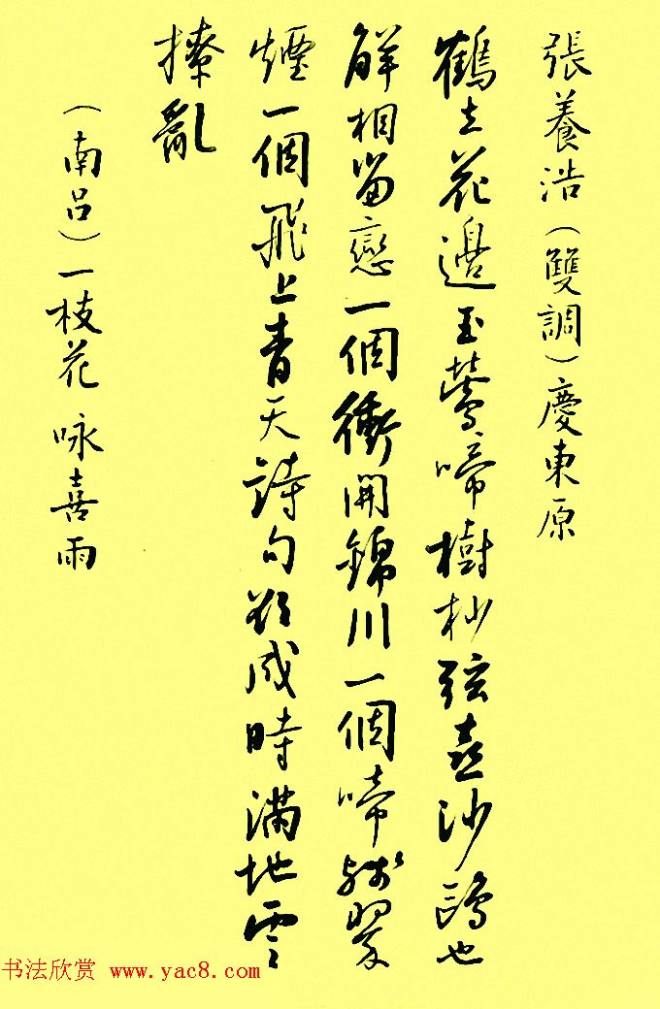 張養浩（雙調）慶東原
鶴立花邊玉鶯啼樹杪弦喜沙鷗也
解相留戀一個衝開錦川一個啼殘翠
煙一個飛上青天詩句欲成時滿地雲
撩亂
（南呂）一枝花 咏喜雨
书法欣赏 www.yac8.com